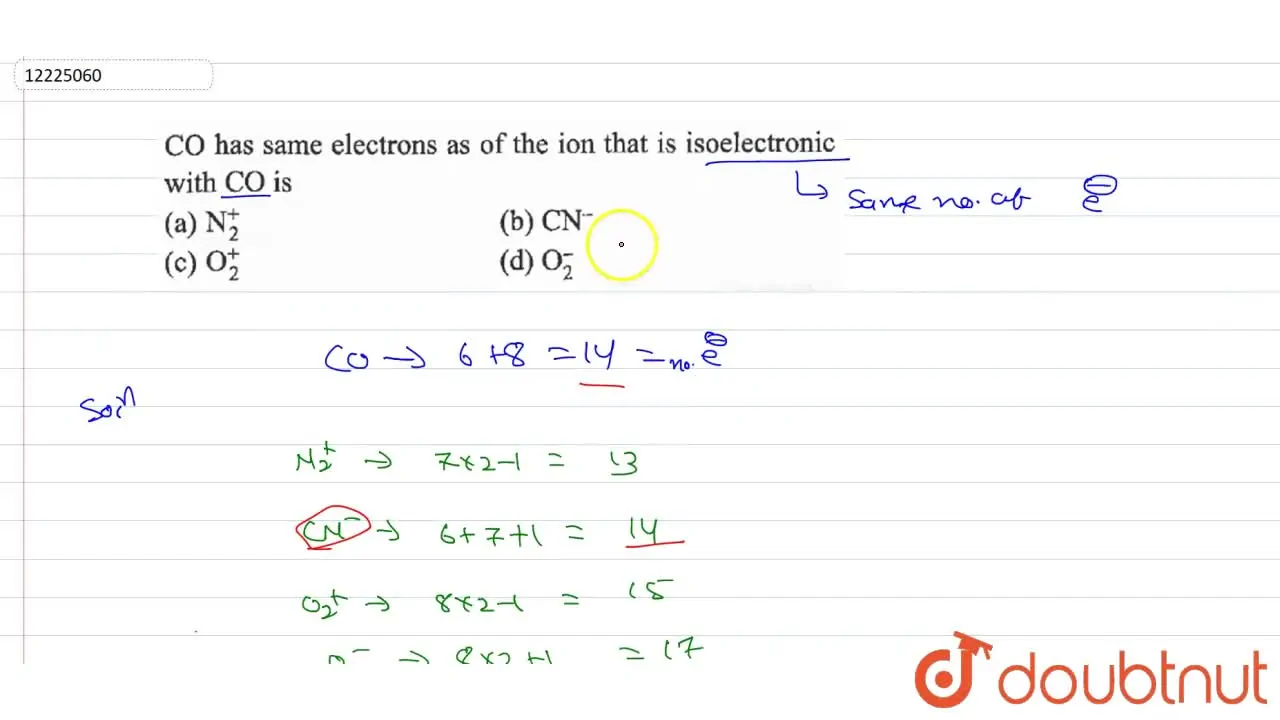 12225060
CO has same electrons as of the ion that is isoelectronic
with CO is
↳ Same no. of e⊖
(a) N₂⁺ (b) CN⁻
(c) O₂⁺ (d) O₂⁻
CO → 6+8 = 14 = no. e⊖
Solⁿ
N₂⁺ → 7×2-1 = 13
CN⁻ → 6+7+1 = 14
O₂⁺ → 8×2-1 = 15
O₂⁻ → 8×2+1 = 17
doubtnut